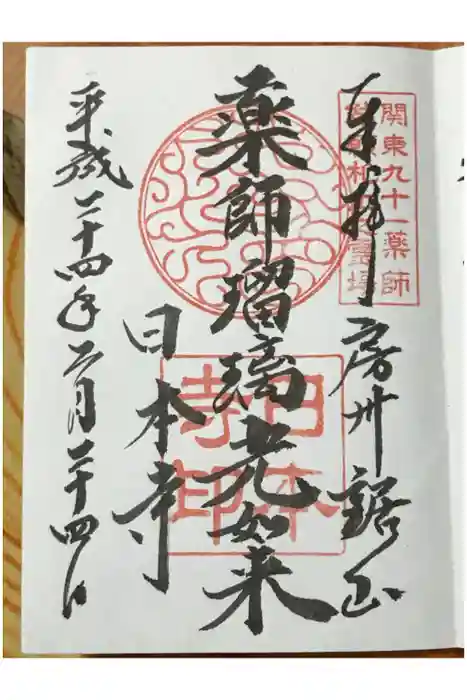 関東九十一薬師
奉拝 房州鋸山
薬師瑠璃光如来
日本寺印
日本寺
平成二十四年二月二十四日